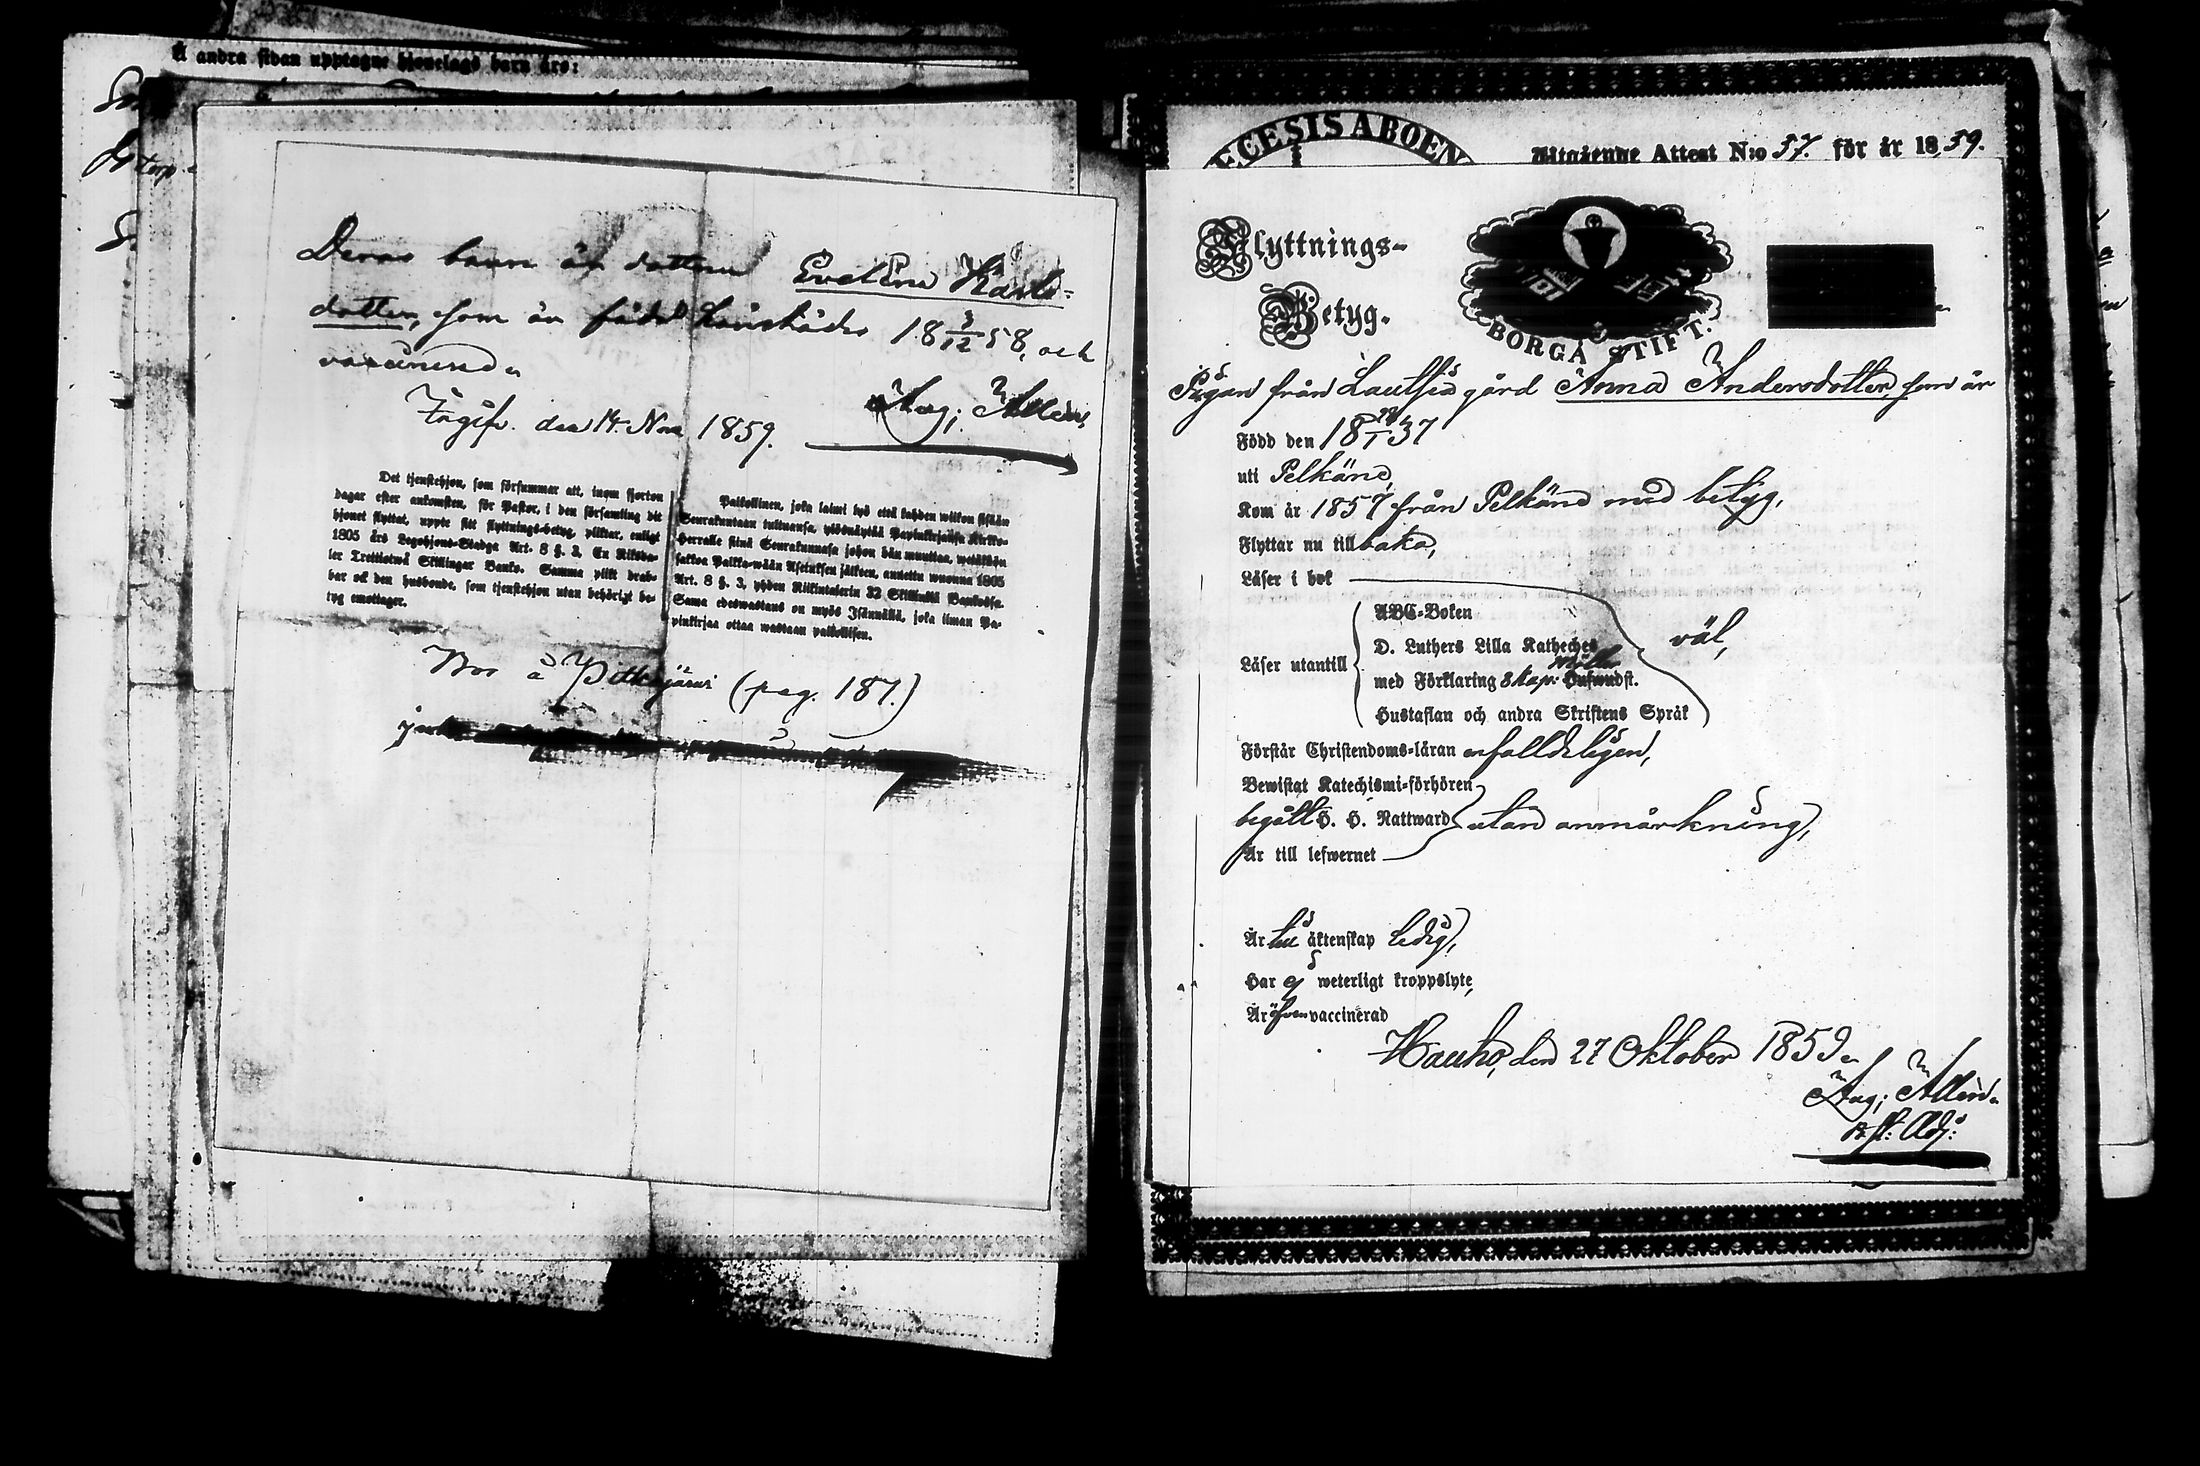 å andra sidan upptagne hjonelags barn äro:
torp
Deras barn är dottren Evelina Karls-
dotter, som är född härstädes 18 3/12 58, och
vaccinerad.
den 14 Nov 1859. Aug: Allén
Det tjenstehjon, som försummar att, inom fjorton
dagar efter ankomsten, för Pastor, i den församling dit
hjonet flyttat, uppte sitt flyttnings-betyg, pliktar, enligt
1805 års Legohjons-Stadga Art. 8 §. 3, En Riksda-
ler Trettiotwå Skillingar Banko. Samma plikt drab-
bar ock den husbonde, som tjenstehjon utan behörigt be-
tyg emottager.
Palkollinen, joka laimi lyö että kahden wiikon sisään
Seurakuntaan tultuansa, ylösnäyttää Papinkirjansa Kirkko-
Herralle siinä Seurakunnasa johon hän muuttaa, wetäköön
sakkoa Palkka-wään Asetuksen jälkeen, annettu wuonna 1805
Art. 8 §. 3, yhden Riikintalerin 32 Skillinkiä Bankossa.
Sama edeswastaus on myös Isännällä, joka ilman Pa-
pinkirjaa ottaa wastaan palkollisen.
Bor å Pitkäjärvi (pag. 187.)
ECESIS ABOEN
Utgående Attest N:o 57. för år 1859.
Flyttnings-
Betyg.
BORGÅ STIFT.
Pigan från Lautsia gård Anna Andersdotter, som är
Född den 18 28/1 37
uti Pelkäne,
Kom år 1857 från Pelkäne med betyg,
Flyttar nu tillbaka,
Läser i bok
ABC-Boken
D. Luthers Lilla Katheches
Läser utantill väl,
med Förklaring 8 kap: Hufwudst.
Hustaflan och andra Skriftens Språk
Förstår Christendoms-läran enfalldeligen,
Bewistat Katechismi-förhören
begått H. H. Nattward utan anmärkning,
Är till lefwernet
Är till äktenskap ledig,
Har ej weterligt kroppslyte,
Är äfven vaccinerad
Hauho, den 27 Oktober 1859.
Aug: Allén.
Adj: